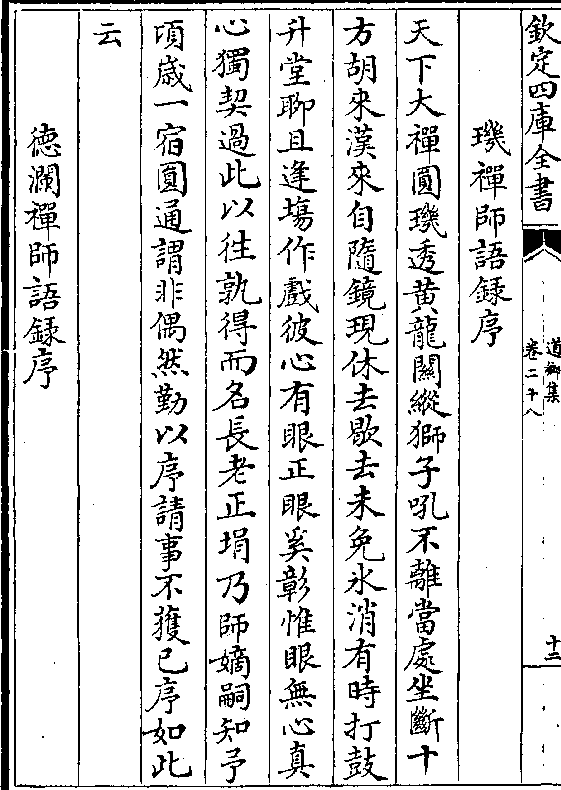 欽定四庫全書
道鄉集
卷二十八
十二
璣禪師語錄序
天下大禪圓璣透黃龍關縱獅子吼不離當處坐斷十
方胡來漢來自隨鏡現休去歇去未免氷消有時打鼓
升堂聊且逢塲作戲彼心有眼正眼奚彰惟眼無心真
心獨契過此以往孰得而名長老正埍乃師嫡嗣知予
頃歲一宿圓通謂非偶然勤以序請事不獲已序如此
云
德瀾禪師語錄序